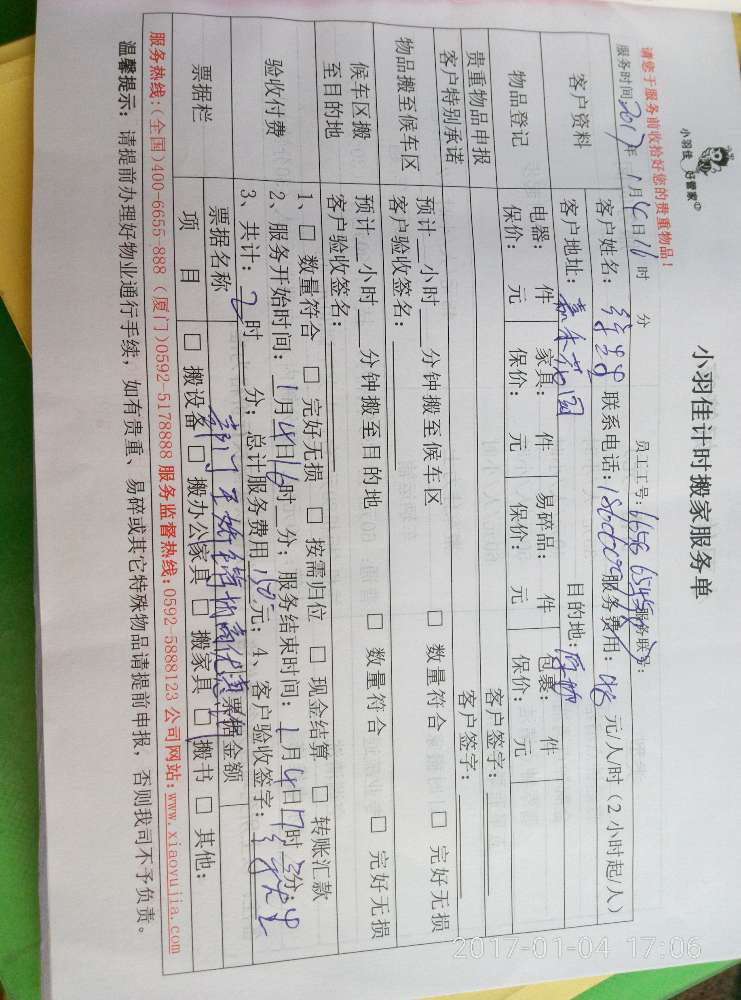 小羽佳 好管家
小羽佳计时搬家服务单
请您于服务前收拾好您的贵重物品!
员工工号: 服务联号:
服务时间2017年1月4日16时 分
客户资料
客户姓名: 联系电话: 服务费用: 元/人/时(2小时起/人)
客户地址: 目的地:
物品登记
电器: 件 家具: 件 易碎品: 件 包裹: 件
保价: 元 保价: 元 保价: 元 保价: 元
贵重物品申报 客户签字:
客户特别承诺 客户签字:
物品搬至候车区
预计 小时 分钟搬至候车区 □ 数量符合 □ 完好无损
客户验收签名:
候车区搬至目的地
预计 小时 分钟搬至目的地 □ 数量符合 □ 完好无损
客户验收签名:
验收付费
1、□ 数量符合 □ 完好无损 □ 按需归位 □ 现金结算 □ 转账汇款
2、服务开始时间:1月4日16时 分;服务结束时间:1月4日17时 分;
3、共计:2时 分;总计服务费用 元;4、客户验收签字:
票据栏
票据名称 票据金额
项目 □ 搬设备 □ 搬办公家具 □ 搬家具 □ 搬书 □ 其他:
服务热线:(全国)400-6655-888 (厦门)0592-5178888 服务监督热线:0592-5888123 公司网站:www.xiaoyujia.com
温馨提示: 请提前办理好物业通行手续, 如有贵重、易碎或其它特殊物品请提前申报, 否则我司不予负责。
2017-01-04 17:06